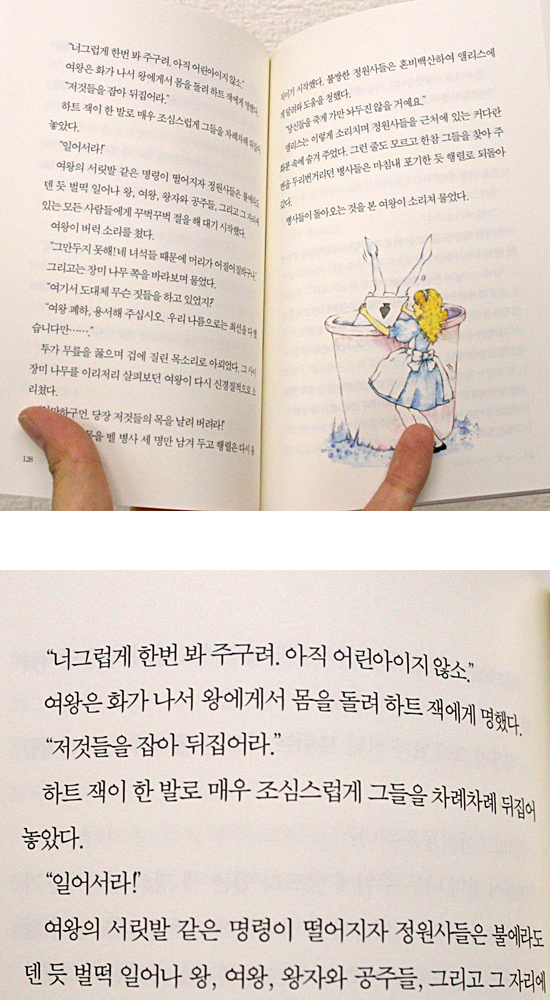 “너그럽게 한번 봐 주구려. 아직 어린아이지 않소.”
여왕은 화가 나서 왕에게서 몸을 돌려 하트 잭에게 명했다.
“저것들을 잡아 뒤집어라.”
하트 잭이 한 발로 매우 조심스럽게 그들을 차례차례 뒤집어
놓았다.
“일어서라!”
여왕의 서릿발 같은 명령이 떨어지자 정원사들은 불에라도
덴 듯 벌떡 일어나 왕, 여왕, 왕자와 공주들, 그리고 그 자리에
있는 모든 사람들에게 꾸벅꾸벅 절을 해 대기 시작했다.
여왕이 버럭 소리를 쳤다.
“그만두지 못해! 네 녀석들 때문에 머리가 어질어질하구나.”
그리고는 장미 나무 쪽을 바라보며 물었다.
“여기서 도대체 무슨 짓들을 하고 있었지?”
“여왕 폐하, 용서해 주십시오. 우리 나름으로는 최선을 다했
습니다만……”
투가 무릎을 꿇으며 겁에 질린 목소리로 아뢰었다. 그 사이
장미 나무를 이리저리 살펴보던 여왕이 다시 신경질적으로 소
리쳤다.
당장 저것들의 목을 날려 버려라!
벨 병사 세 명만 남겨 두고 행렬은 다시 움
128
지이기 시작했다. 불쌍한 정원사들은 혼비백산하여 앨리스에
게 달려와 도움을 청했다.
“당신들을 죽게 가만 놔두진 않을 거예요.”
앨리스는 이렇게 소리치며 정원사들을 근처에 있는 커다란
화분 속에 숨겨 주었다. 그런 줄도 모르고 한참 그들을 찾아 주
변을 두리번거리던 병사들은 마침내 포기한 듯 행렬로 되돌아
갔다.
병사들이 돌아오는 것을 본 여왕이 소리쳐 물었다.
“너그럽게 한번 봐 주구려. 아직 어린아이지 않소.”
여왕은 화가 나서 왕에게서 몸을 돌려 하트 잭에게 명했다.
“저것들을 잡아 뒤집어라.”
하트 잭이 한 발로 매우 조심스럽게 그들을 차례차례 뒤집어
놓았다.
“일어서라!”
여왕의 서릿발 같은 명령이 떨어지자 정원사들은 불에라도
덴 듯 벌떡 일어나 왕, 여왕, 왕자와 공주들, 그리고 그 자리에